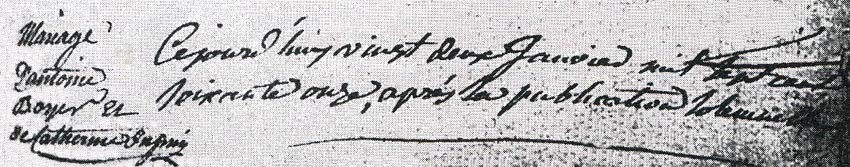 Mariage
d'antoine
Boyer et
de Catherine Dupuy
Cejourd'huy vingt deux Janvier mil sept cent
soixante onze, après la publication solemnelle